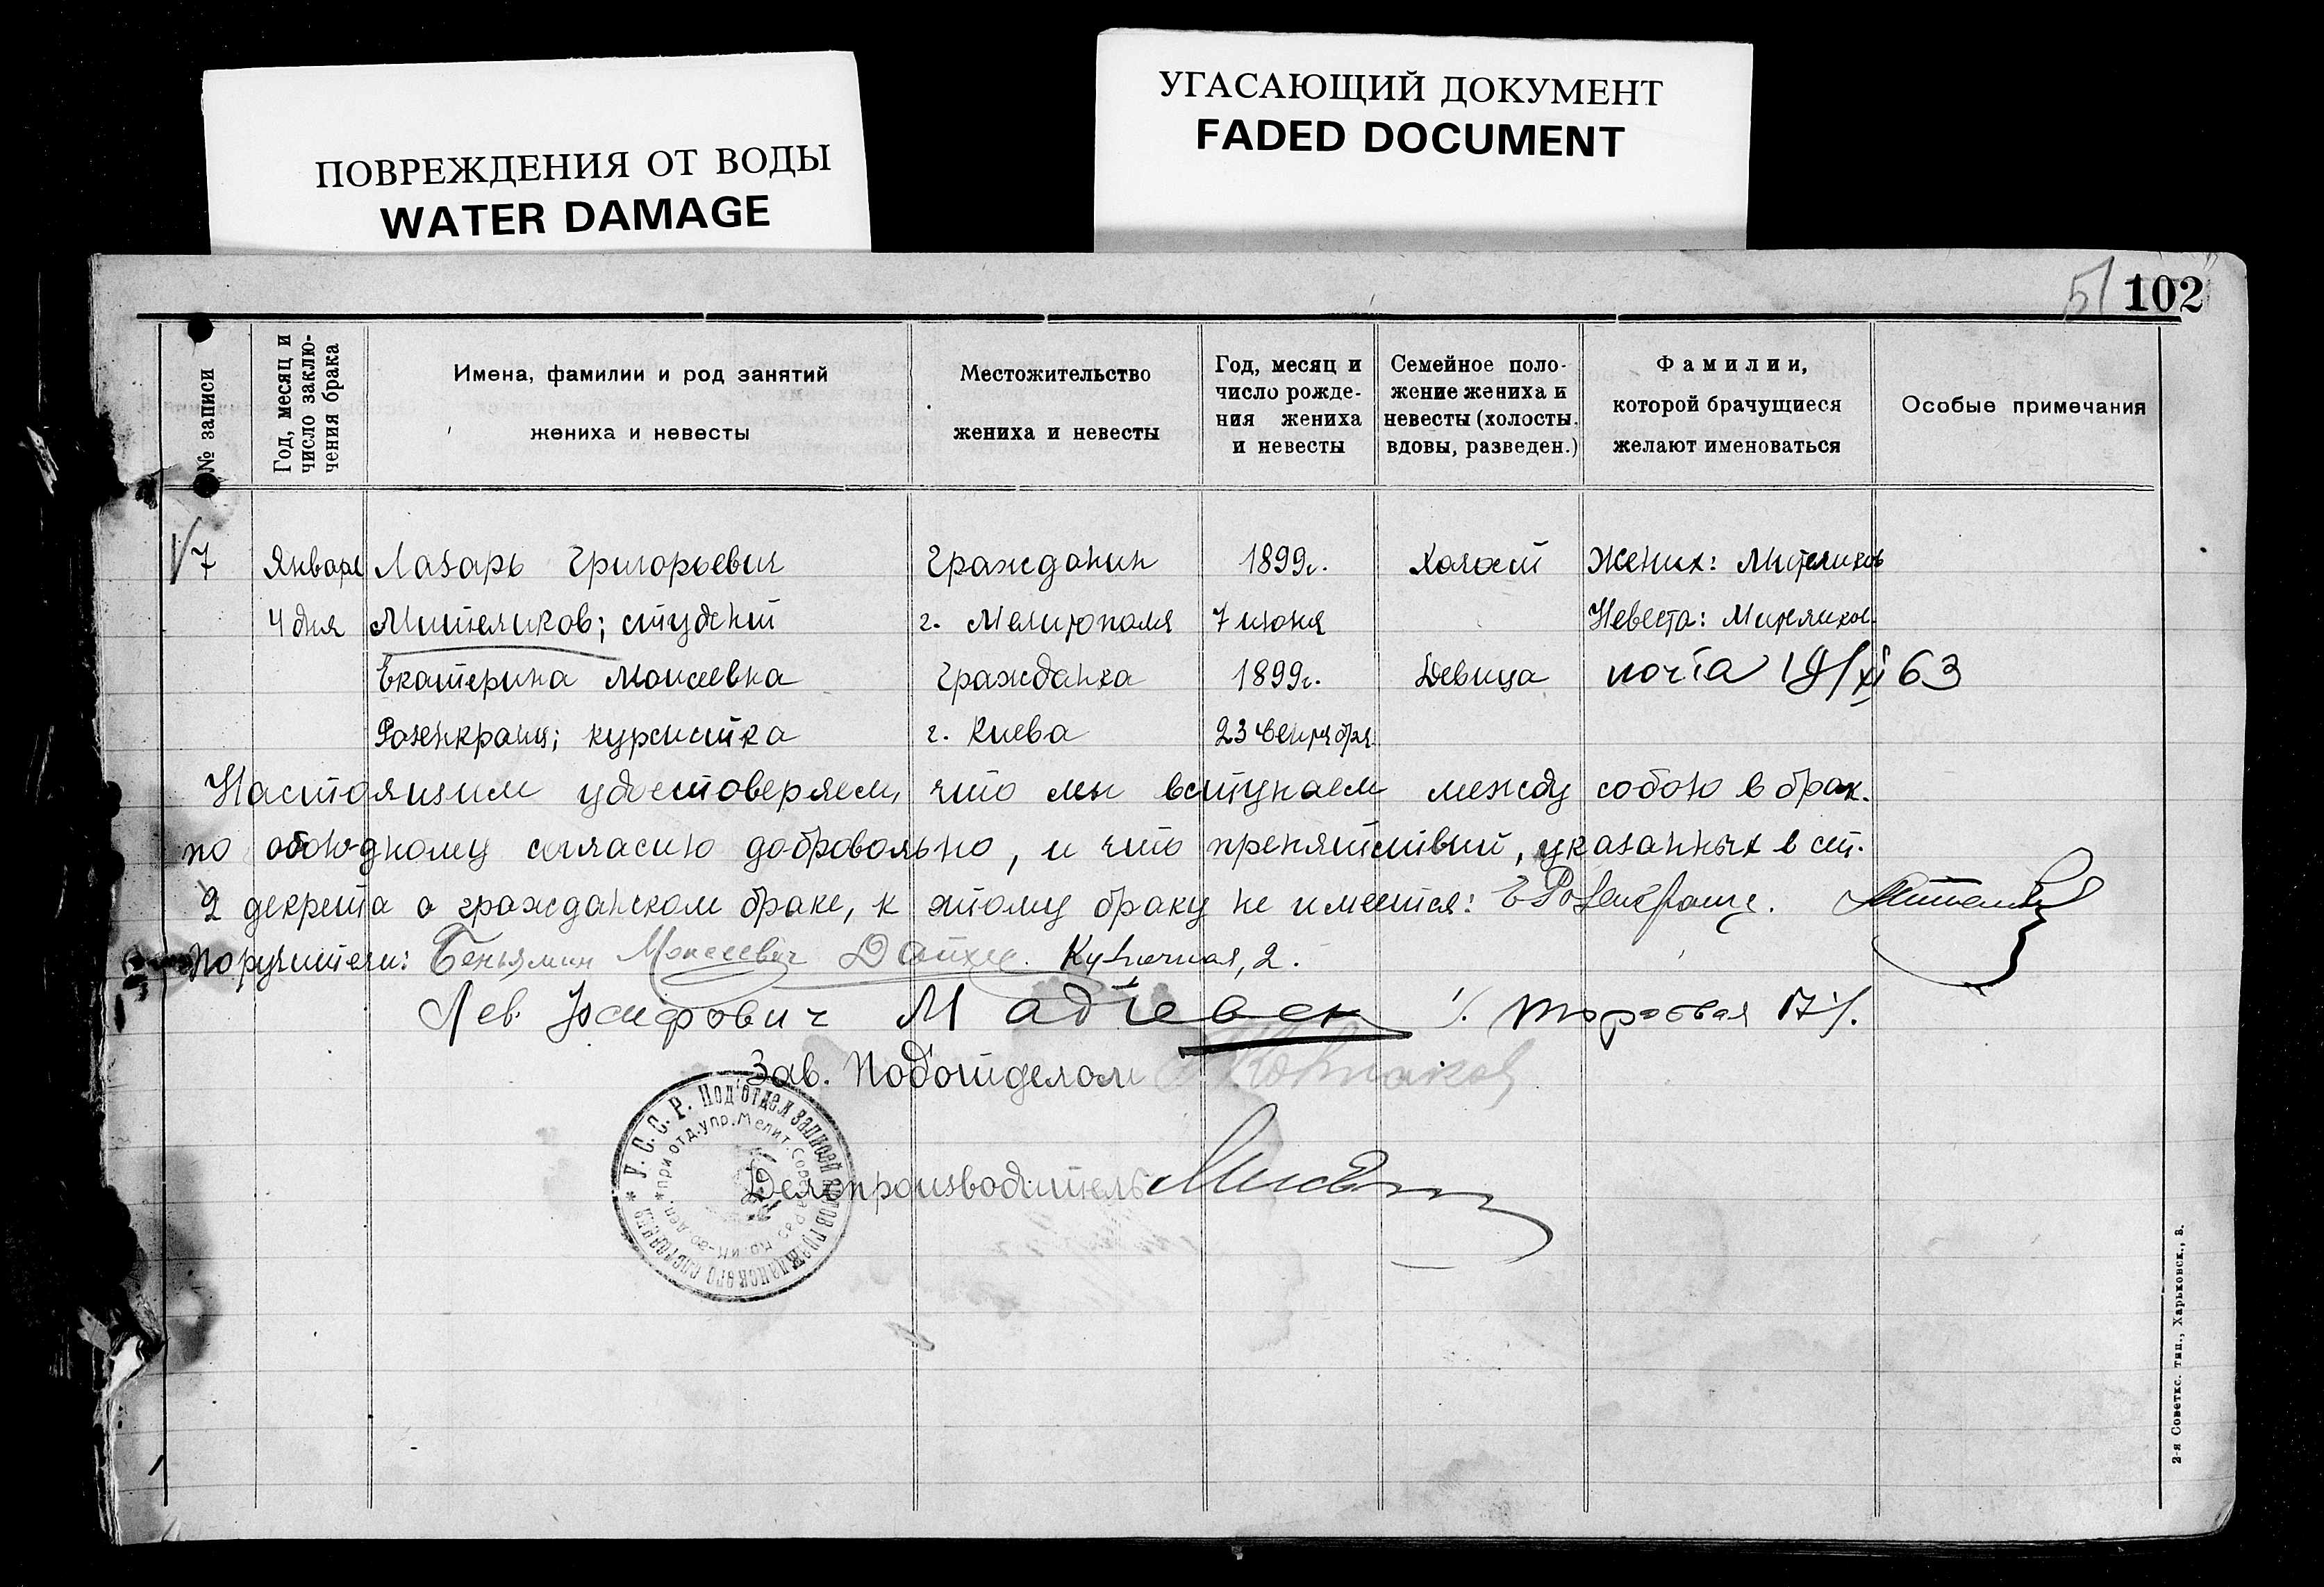 ПОВРЕЖДЕНИЯ ОТ ВОДЫ
WATER DAMAGE
УГАСАЮЩИЙ ДОКУМЕНТ
FADED DOCUMENT
51 102
№ записи
Год, месяц и число заклю-
чения брака
Имена, фамилии и род занятий
жениха и невесты
Местожительство
жениха и невесты
Год, месяц и
число рожде-
ния жениха
и невесты
Семейное поло-
жение жениха и
невесты (холосты,
вдовы, разведен.)
Фамилии,
которой брачущиеся
желают именоваться
Особые примечания
7 Января Лазарь Григорьевич Гражданин 1899г. Холост Жених: Мителиков
4 дня Мителиков; студент г. Мелитополя 7 июня Невеста: Мителиков
Екатерина Моисеевна Гражданка 1899г. Девица почта 19/XI 63
Розенкранц; курсистка г. Киева 23 сентября
Настоящим удостоверяем, что мы вступаем между собою в брак.
по обоюдному согласию добровольно, и что препятствий, указанных в ст.
2 декрета о гражданском браке, к этому браку не имеется: Е Розенкранц.
Поручители: Беньямин Моисеевич Дайхес. Кузнечная, 2.
Лев Иосифович Мадиевск Торговая 17
Зав. Подотделом
Делопроизводитель
У. С. С. Р. Под'отдел записей актов гражданского состояния
при отд. упр. Мелит.
2-я Советск. тип., Харьковск., 8.